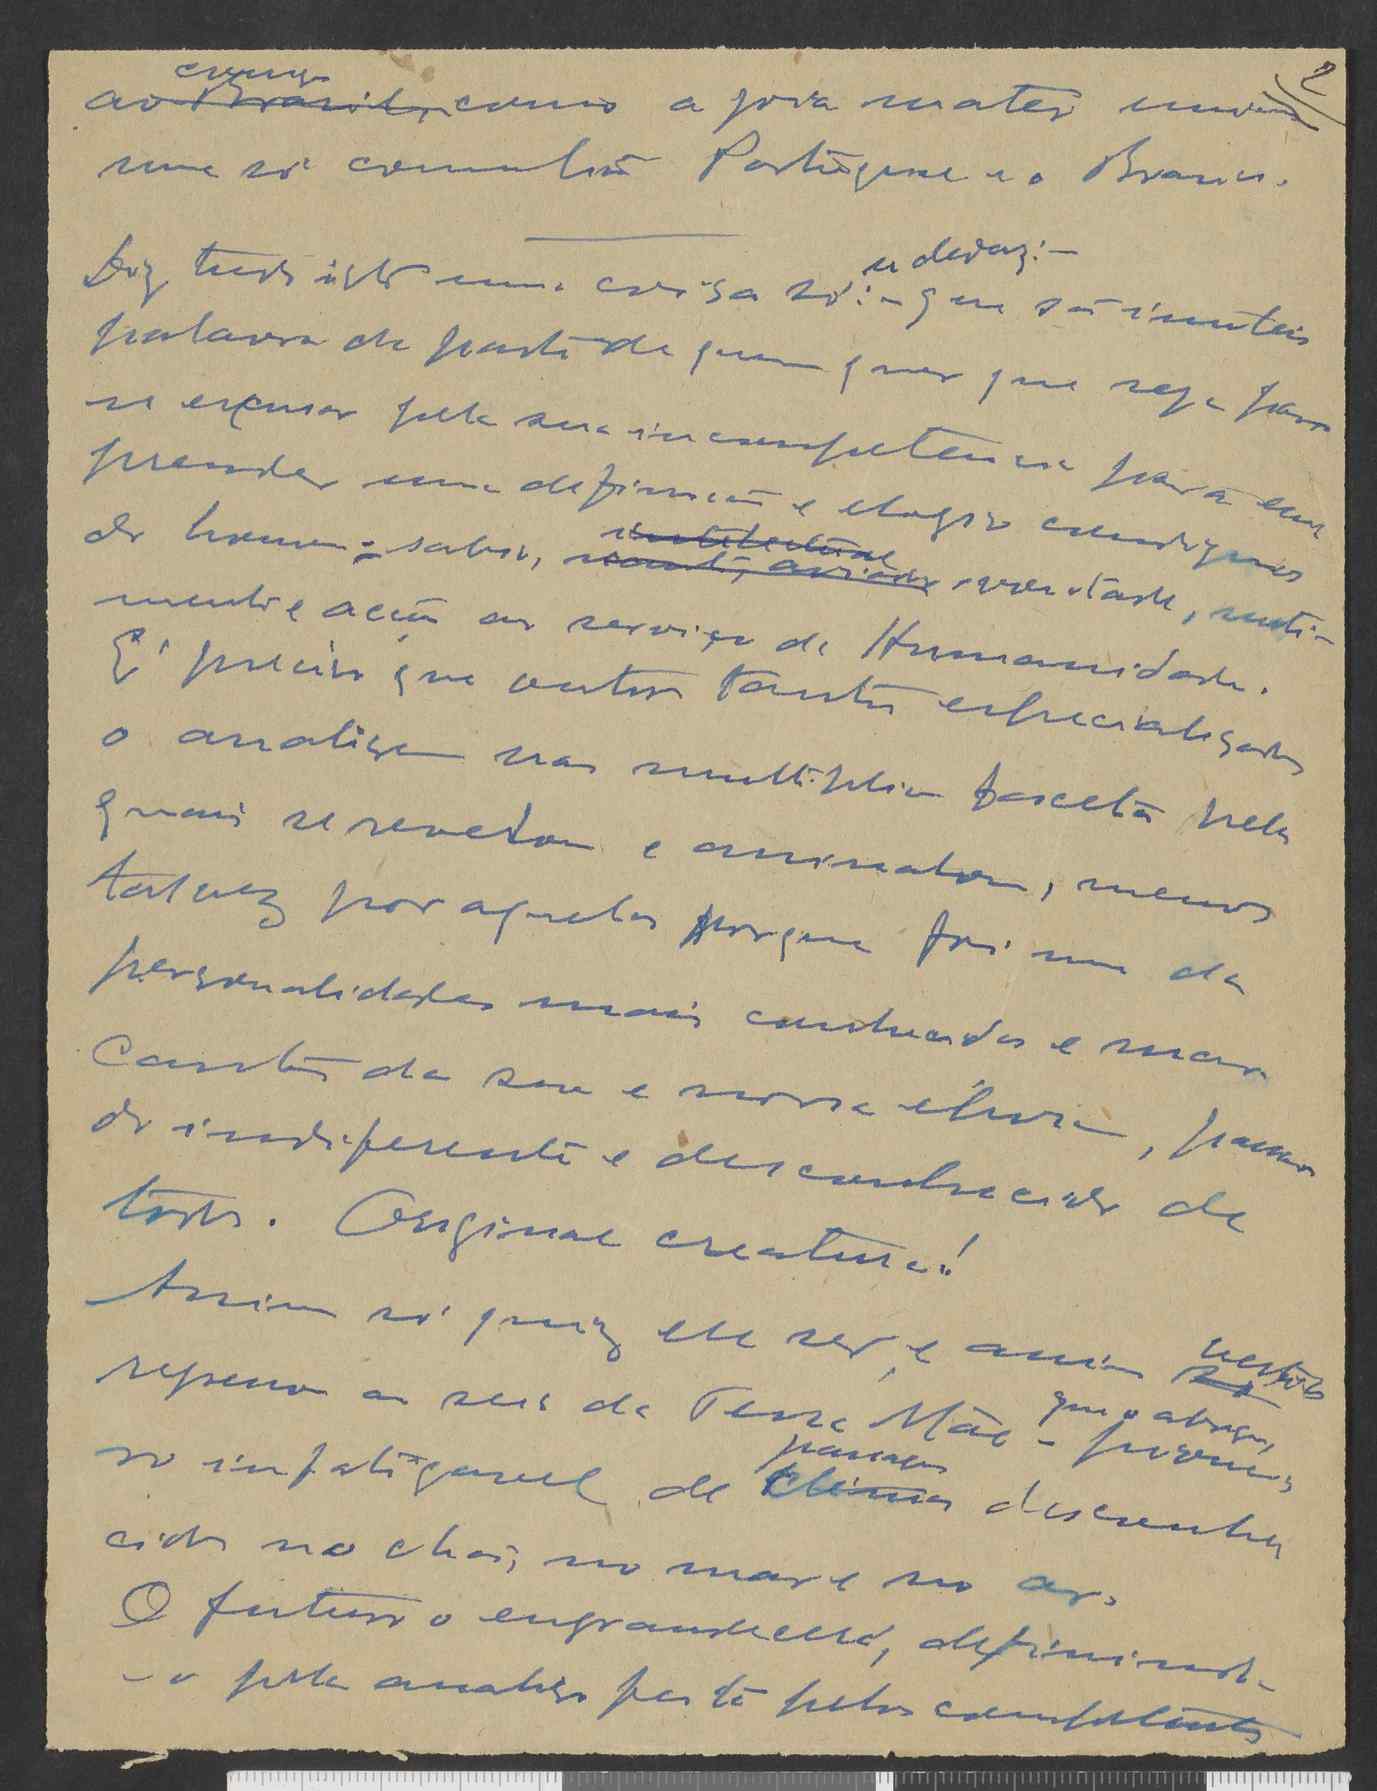 2
ao Brasil, como a
uma só Portugal e o Brasil.
se deduz:-
De tudo isto uma coisa só:- que são inuteis
palavras da parte de quem quer que seja para
se excusar pela sua incompetencia para em
prender uma definição e elogio condignos
intelectual
do homem: sabio, aviador verdade, senti-
mento e acção ao serviço da Humanidade.
E' preciso que outros tantos especialisados
o analisem nas multiplas facetas pelas
quais se revelou e assinalou, menos
talvez por aquelas porque foi uma das
personalidades mais conhecidas e mar
cantes da sua e nossa época, passan
do indiferente e desconhecido de
todos. Original creatura!
Assim só quiz ele ser, e assim só
repousa ao seio da Terra Mãe -
que o abraça,
so infatigavel de climas desconhe
cidos no chão, no mar e no ar.
O futuro o engrandecerá, definindo-
-o pela analise feita pelos competentes